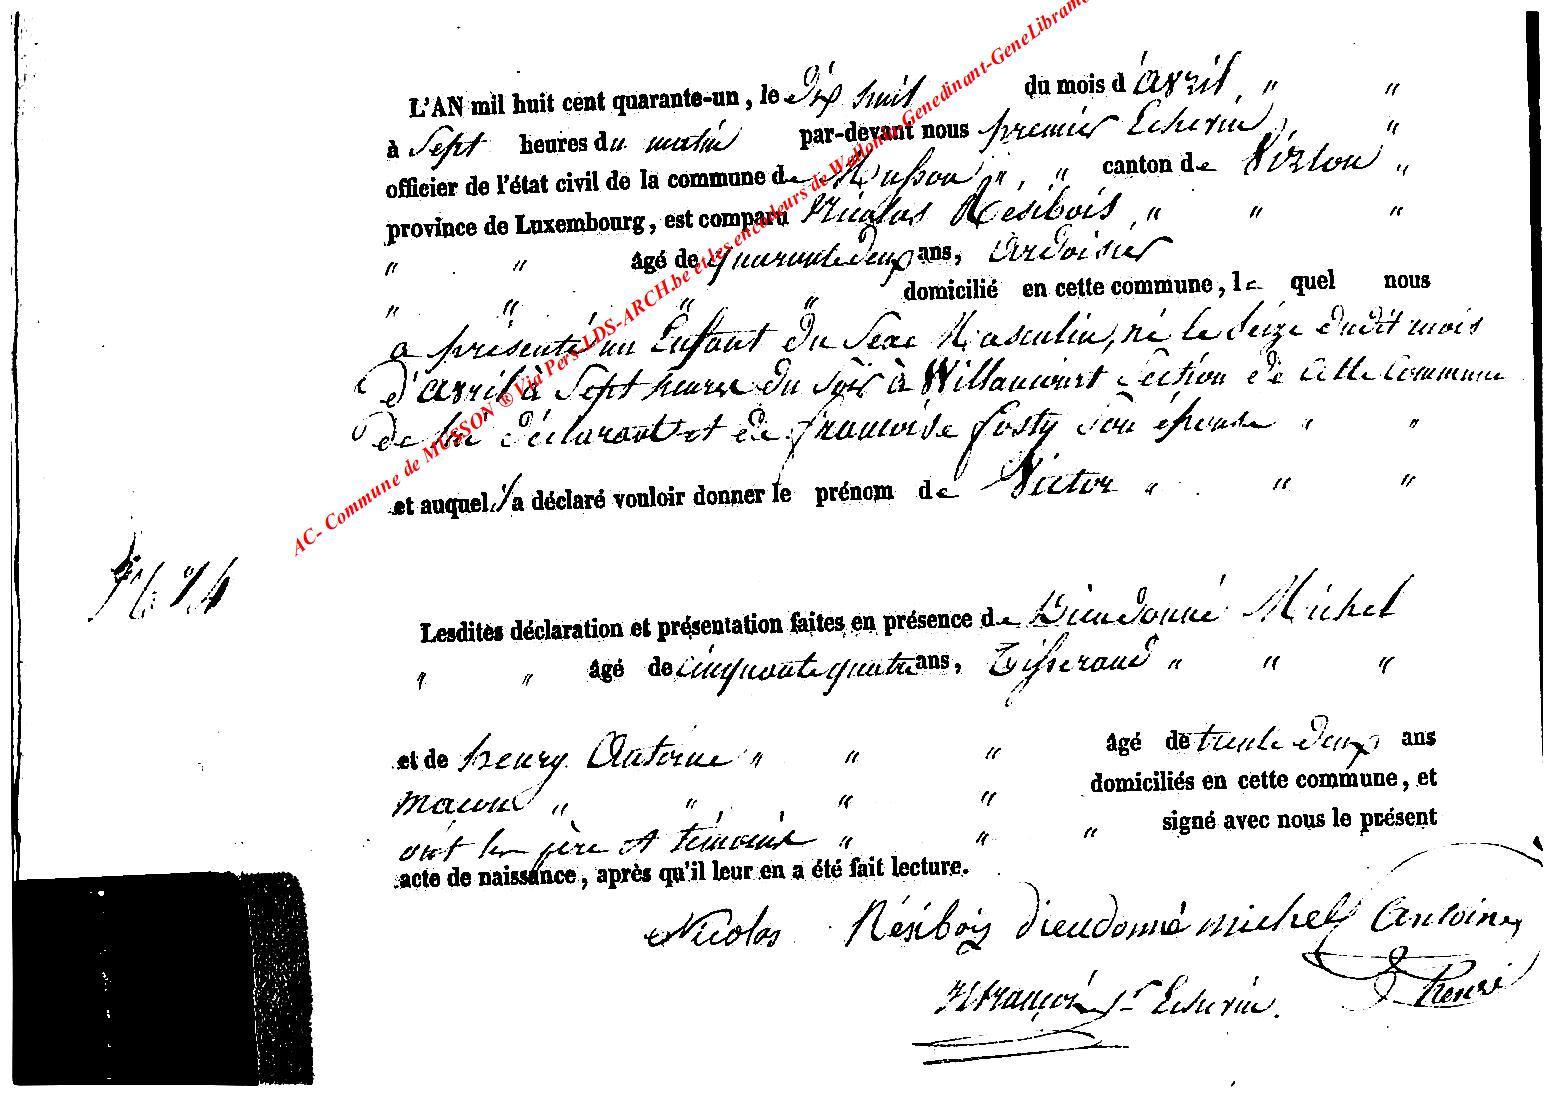 L'AN mil huit cent quarante-un, le Dix huit du mois d'avril, " "
à Sept heures du matin par-devant nous premier Echevin, "
officier de l'état civil de la commune de Musson ", " canton de Virton "
province de Luxembourg, est comparu Nicolas Résibois, " " "
" " âgé de quarante deux ans, Ardoisier
" " " " domicilié en cette commune, le quel nous
a présenté un Enfant du Sexe Masculin, né le seize dudit mois
d'avril à Sept heures du soir à Willancourt Section de cette Commune
de lui déclarant et de françoise fosty son épouse " "
et auquel il a déclaré vouloir donner le prénom de Victor " " "
Lesdites déclaration et présentation faites en présence de Dieudonné Michel
" " âgé de cinquante quatre ans, Tisserand " " "
et de henry Antoine " " " âgé de trente deux ans
macon " " , " " domiciliés en cette commune, et
ont les père et témoins " " " signé avec nous le présent
acte de naissance, après qu'il leur en a été fait lecture.
Nicolas Résibois dieudonné michel Antoine
henri
François 1er Echevin.
AC- Commune de MUSSON ® Via Pers-LDS-ARCH.be et les encodeurs de Wallonia-Genedinant-GeneLibramo